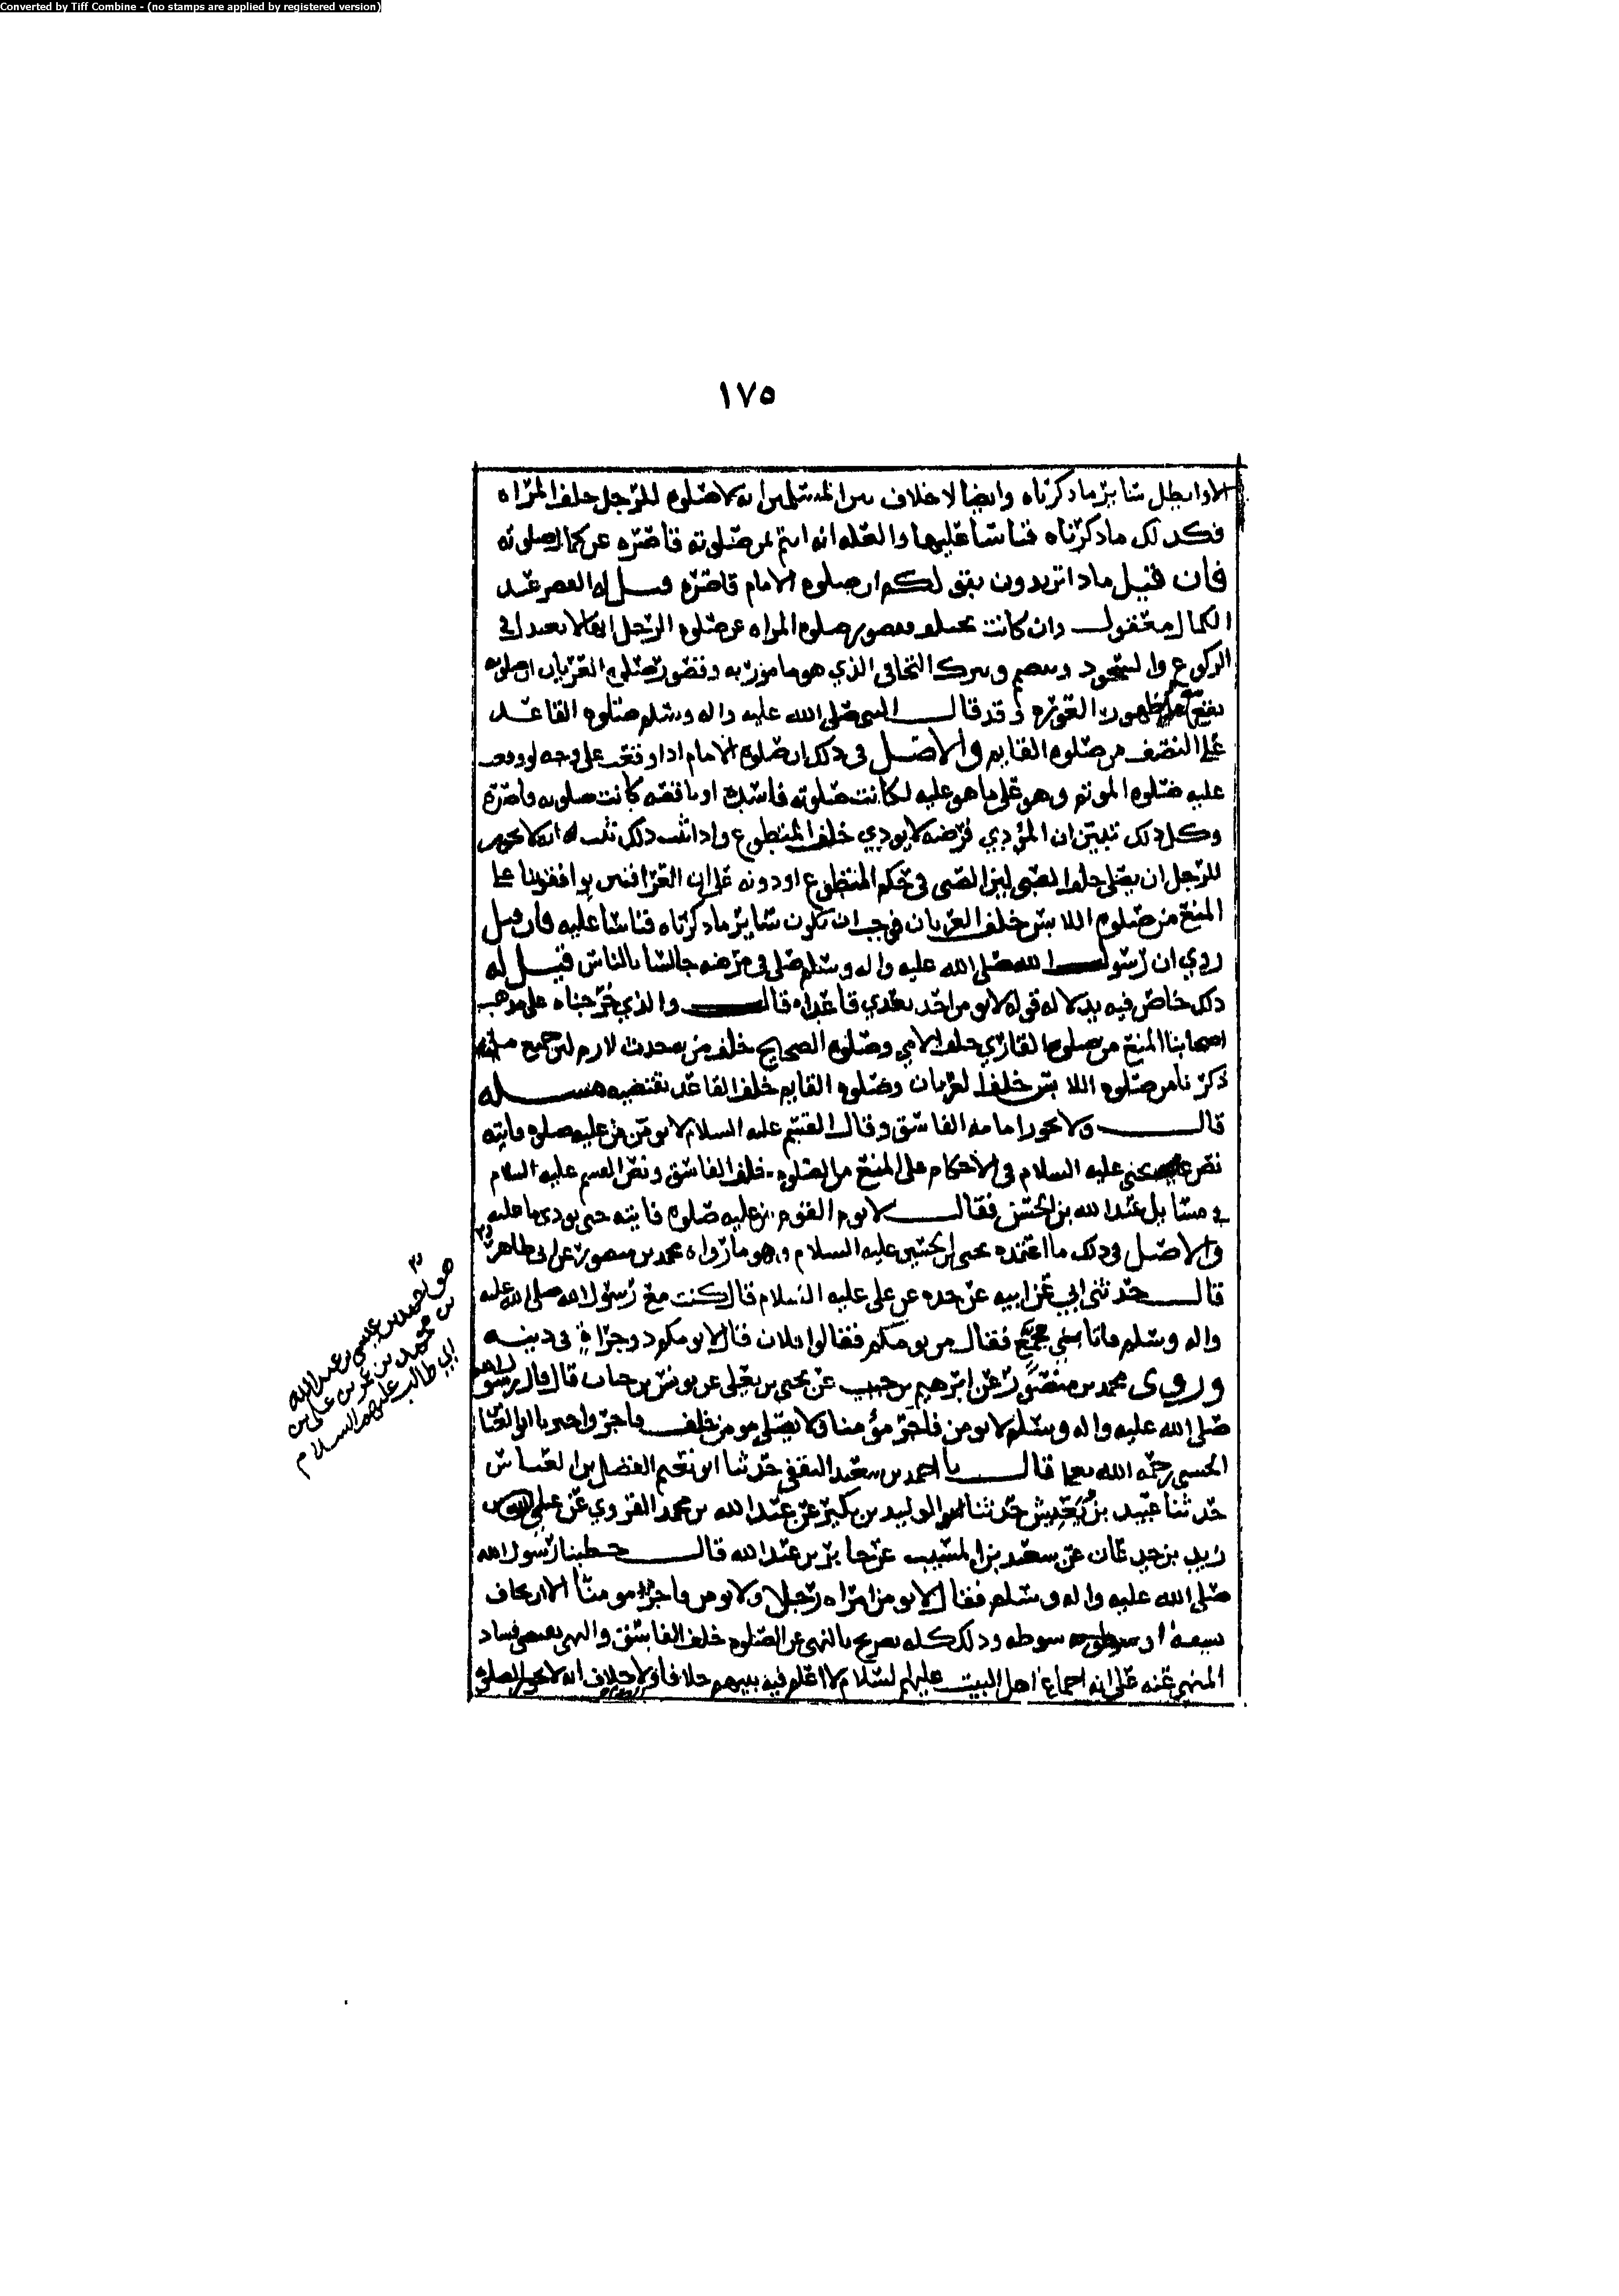 Converted by Tiff Combine - (no stamps are applied by registered version)
١٧٥
الاوابطل سا بر ماد كرناه وايضا لا خلاف بين المسلمين انه لا صلوه للرجل خلف المراه
فكذلك ماذكرناه قياسا عليها والعله انه ائتم لمن صلوته قاصره عن كمال صلوته
فان قيل ماذا تريدون بقولكم ان صلوه الامام قاصره قيل له القصر عند
الكمال معقول وان كانت محتلفه فقصور صلوه المراه عن صلوه الرجل انها لا تعتدل في
الركوع والسجود وتترك التخافي الذي هو مامور به وقصور صلوه العريان ان صلوته
تقع مع ظهور العوره وقد قال النبي صلى الله عليه واله وسلم صلوه القاعد
على النصف من صلوه القايم والاصل في ذلك ان صلوه الامام اذا وقعت على وجه لو وقعت
عليه صلوه الموتم وهو على ما هو عليه لكانت صلوته فاسده او ناقصه كانت صلوته قاصره
وكل ذلك تبين ان المؤدي فرضه لا يودي خلف المتطوع واذا ثبت ذلك ثبت انه لا يجوز
للرجل ان يصلي خلف الصبي لان الصبي في حكم المتطوع او دونه على ان يوافقونا على
المنع من صلوه اللابس خلف العريان فوجب ان تكون ساير ماذكرناه قياسا عليه فان قيل
روي ان رسول الله صلى الله عليه واله وسلم صلى في مرضه جالسا بالناس قيل له
ذلك خاص فيه بدلاله قوله لا يومن احد بعدي قاعدا قال والذي خرجناه على مذهب
اصحابنا المنع من صلوه القاري خلف الامي وصلوه الصحيح خلف من به حدث لازم لان جميع ما
ذكرنا من صلوه اللابس خلف العريان وصلوه القايم خلف القاعد يقتضيه مسله
قال ولا يجوز امامه الفاسق وقال القسم عليه السلام لا يومن من عليه صلوه فايته
نص يحيى عليه السلام في الاحكام على المنع من الصلوه خلف الفاسق ونص القسم عليه السلام
في مسايل عبد الله بن الحسن فقال لا يوم القوم من عليه صلوه فايته حتى يودي ما عليه
والاصل في ذلك ما اعتمده يحيى بن الحسين عليه السلام وهو ما رواه محمد بن منصور عن ابي طاهر
قال حدثني ابي عن ابيه عن جده عن علي عليه السلام قال كنت مع رسول الله صلى الله عليه
واله وسلم فاتا بني مجمع فقال من يومكم فقالوا فلان قال لا يومكم ذو جراة في دينه
وروى محمد بن منصور عن ابرهيم بن حبيب عن يحيى بن يعلى عن يونس بن خباب قال قال رسول الله
صلى الله عليه واله وسلم لا يومن فاجر مؤمنا ولا يصلي مومن خلف فاجر واخبرنا ابو العباس
الحسني رحمه الله قال نا احمد بن سعيد الثقفي حدثنا ابو نعيم الفضل بن العباس
حدثنا عبيد بن حدثنا ابو الوليد بن بكير عن عبد الله بن محمد العزوي عن علي بن
زيد بن جدعان عن سعيد بن المسيب عن جابر بن عبد الله قال خطبنا رسول الله
صلى الله عليه واله وسلم فقال لا يومن امراه رجلا ولا يومن فاجر مومنا الا ان يخاف
سيفه او سوطه وذلك كله تصريح بالنهي عن الصلوه خلف الفاسق والنهي يقتضي فساد
المنهي عنه على انه اجماع اهل البيت عليهم السلام لا اعلم فيه بينهم خلافا ولا خلاف انه لا يجوز الصلوه
هو احمد بن عيسى بن عبد الله
بن محمد بن عمر بن علي بن
ابي طالب عليهم السلام